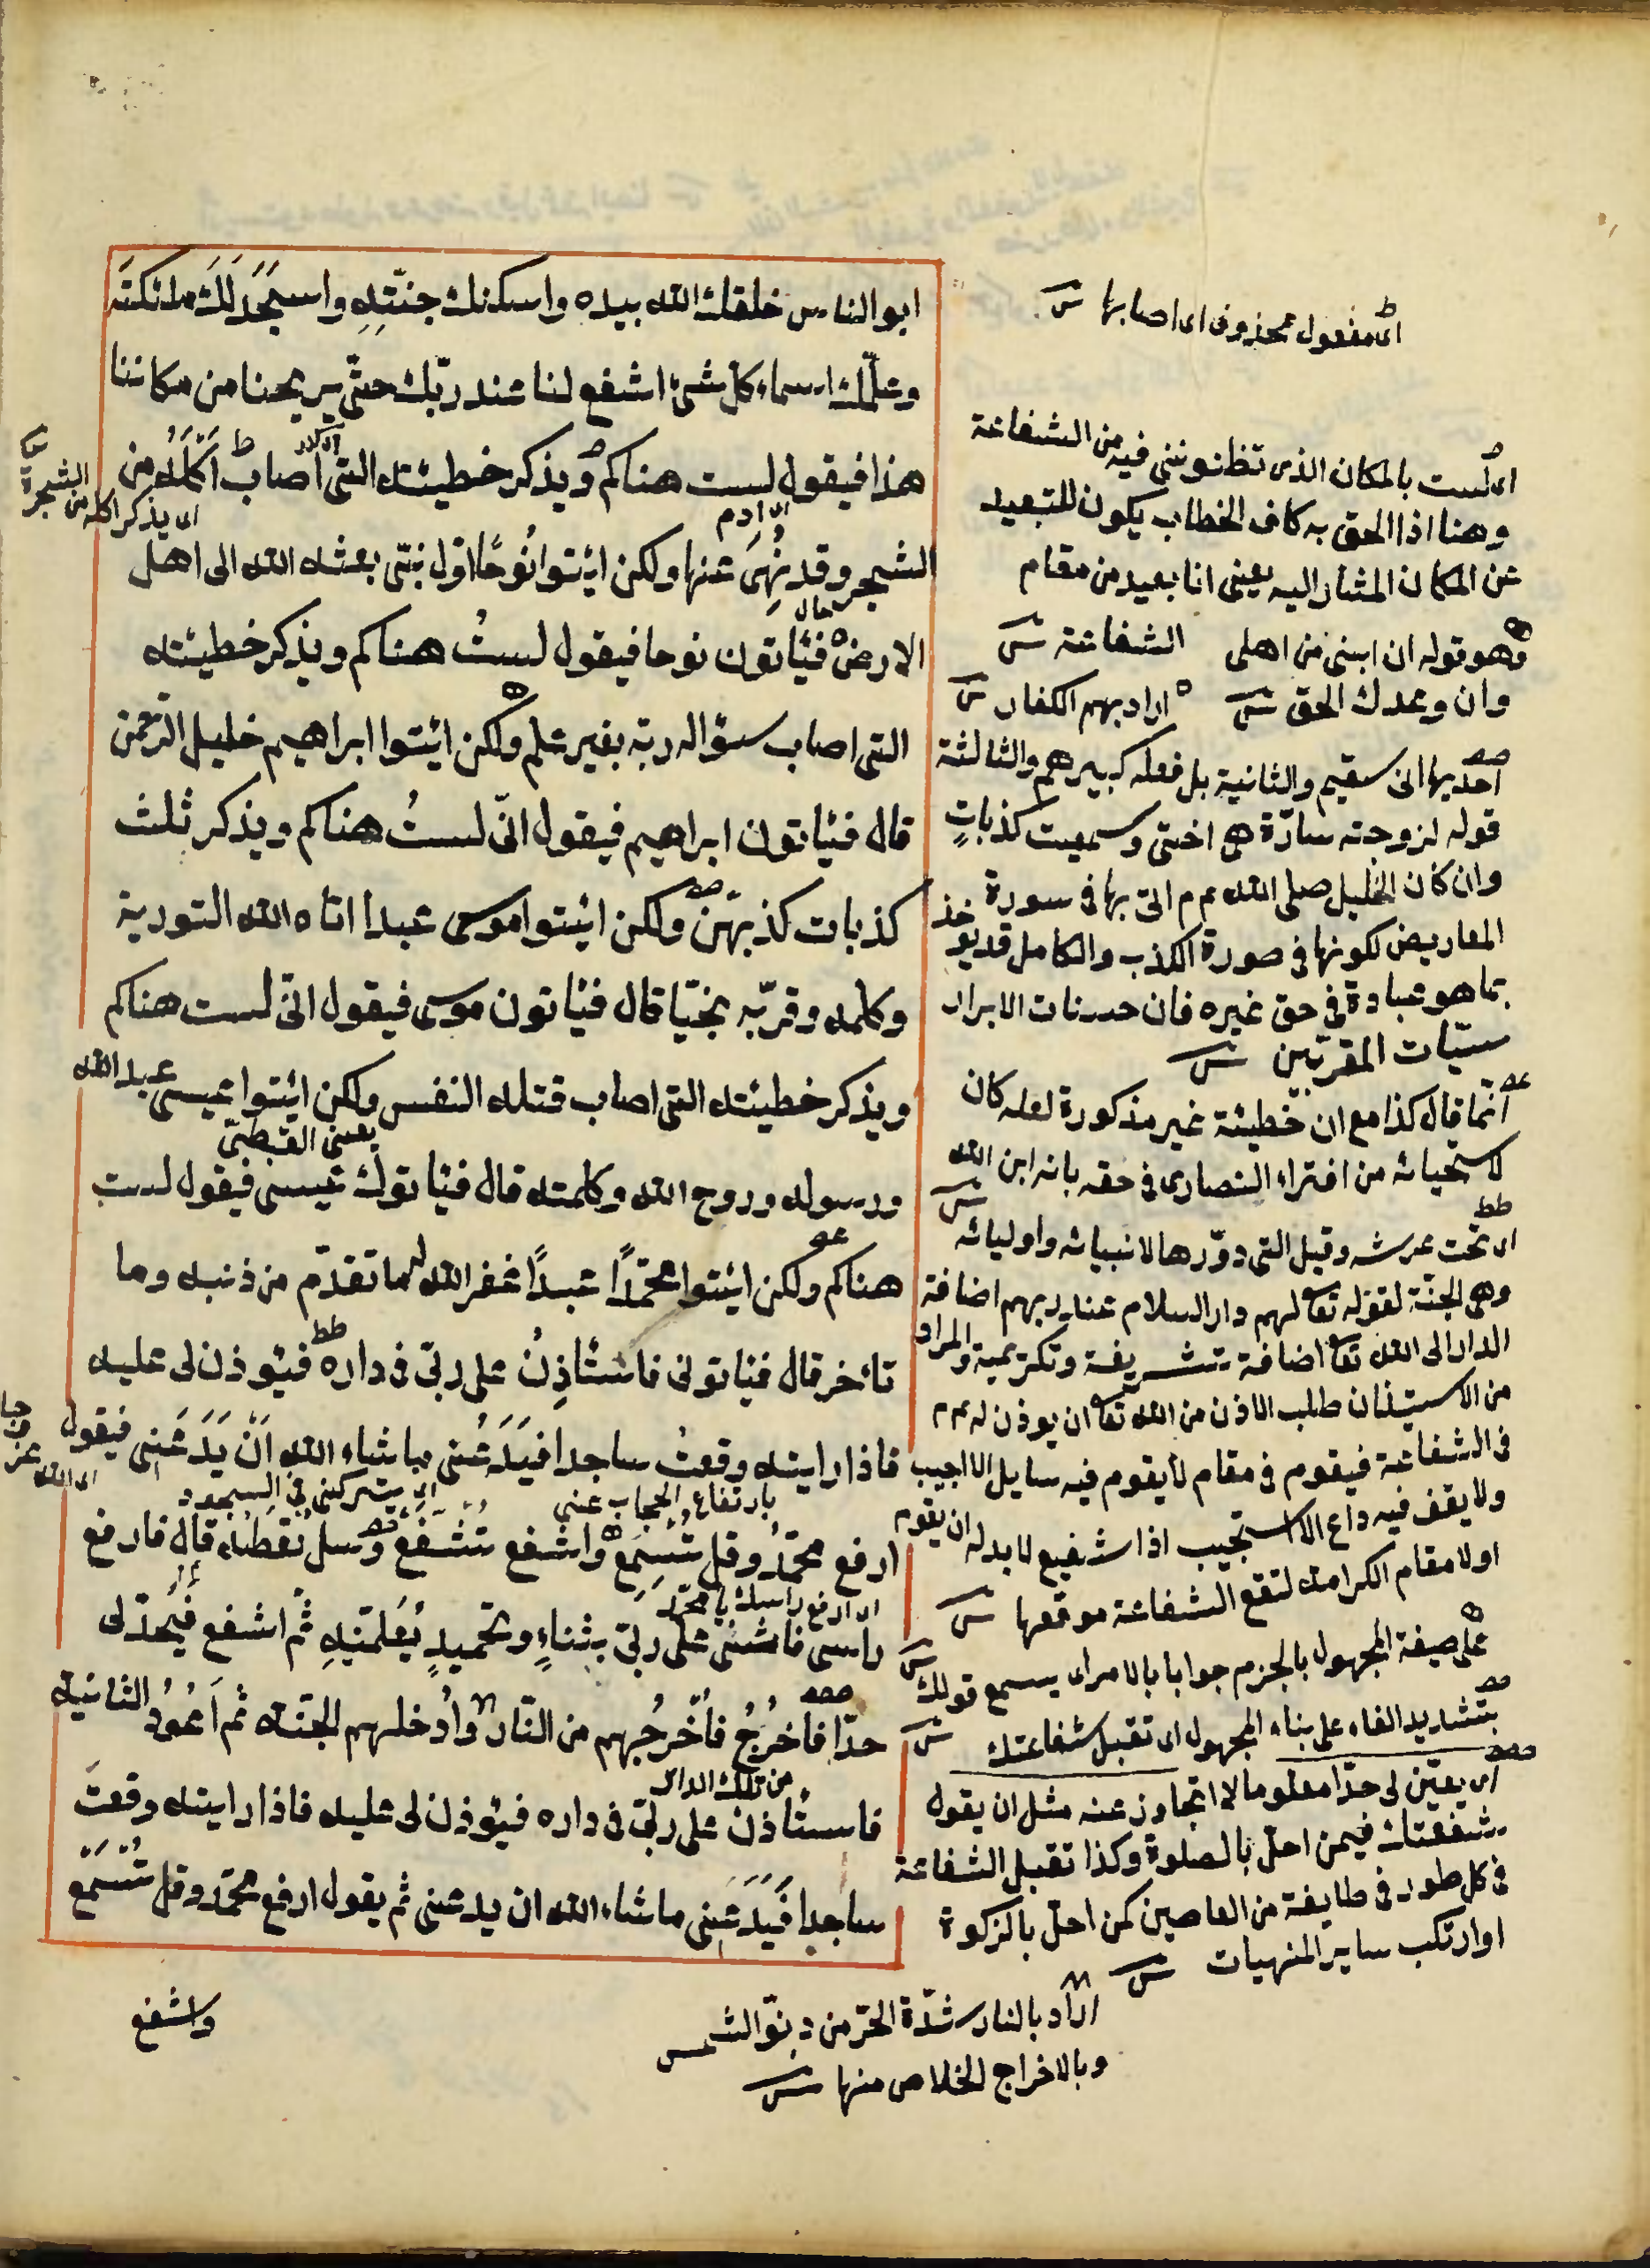 ابو الناس خلقك الله بيده واسكنك جنّتِهِ واسجَدَ لَكَ ملائكتَه
وعلّمك اسماء كل شئ اشفع لنا عند ربّك حتّى يريحنا من مكاننا
هذا فيقول لست هناكم ويذكر خطيئته التى اصاب اَكْلَهُ من
الشجر وقد نُهِىَ عنها ولكن ائتوا نُوحًا اوّل نبّى بعثه الله الى اهل
الارض فئاتون نوحا فيقول لستُ هناكم ويذكر خطيئته
التى اصاب سؤاله ربّه بغير علم ولكن ائتوا ابراهيم خليل الرّحمن
قال فئاتون ابراهيم فيقول انّى لستُ هناكم ويذكر ثلث
كذبات كذبهّن ولكن ائيتوا موسى عبدا اتاه الله التورية
وكلمه وقرّبه نجيّا قال فئاتون موسى فيقول انّى لست هناكم
ويذكر خطيئته التى اصاب قتله النفس ولكن ائيتوا عيسى عبد الله
يعنى القبطىّ
ورسوله وروح الله وكلمته قال فئاتون عيسى فيقول لست
هناكم ولكن ائيتوا محمّدًا عبدًا غفر الله له ما تقدّم من ذنبه وما
تأخر قال فئاتونى فاستٔاذِنُ على ربّى فى داره فئوذن لى عليه
فاذا رايته وقعتُ ساجدا فيَدَعُنى ما شاء الله اَنْ يَدَعَنى فيقول
اى يتركنى فى السجود
بارتفاع الحجاب عنى
ارفع محمّدُ وقل تُسْمَع واشفع تُشَفّعْ وسل تُعْطَهْ قال فارفع
اى ارفع راسك يا محمّد
راسى فاُثنى على ربّى بثناءٍ وتحميدٍ يُعَلّمَنيهِ ثُمّ اشفع فيُحدّ لى
حدّا فاَخرُجُ فاُخْرِجُهم من النّار واُدخلهم الجنّة ثم اَعُودُ الثانية
من تلك الدار
فاستٔاذن على ربّى فى داره فئوذن لى عليه فاذا رايته وقعتُ
ساجدا فَيَدَعُنى ما شاء الله ان يدعنى ثم يقول ارفع محمّد وقل تُسْمَع
واشفع
اى مفعول محذوف اى اصابها ش
اى لست بالمكان الذى تظنوننى فيه من الشفاعة
وهنا اذا الحق به كاف الخطاب يكون للتبعيد
عن المكان المشار اليه يعنى انا بعيد من مقام
الشفاعة ش
وهو قوله ان ابنى من اهلى
وان وعدك الحق ش
اراد بهم الكفار ش
احديها انى سقيم والثانية بل فعله كبيرهم والثالثة
قوله لزوجته سارّة هى اختى وسميت كذباتٍ
وان كان الخليل صلى الله عم م اتى بها فى سورة
المعاريض لكونها فى صورة الكذب والكامل قد يؤخذ
بما هو عبادة فى حق غيره فان حسنات الابرار
سيّات المقربّين ش
انّما قال كذا مع ان خطيئة غير مذكورة لعله كان
لاستحيائه من افتراء النصارى فى حقه بانه ابن الله ش
اى تحت عرشه وقيل التى دوّرها لانبيائه واوليائه
وهى الجنّة لقوله تعا لهم دار السلام عند ربهم اضافة
الدار الى الله تعا اضافة تشريفة وتكريمية والمراد
من الاستيذان طلب الاذن من الله تعا ان يوذن له عم م
فى الشفاعة فيقوم فى مقام لا يقوم فيه سايل الا اجيب
ولا يقف فيه داع الا استجيب اذا شفيع لا بد له ان يقوم
اولا مقام الكرامة لتقع الشفاعة موقعها ش
على صيغة المجهول بالجزم جوابا بالامر اى يسمع قولك ش
بتشديد الفاء على بناء المجهول اى تقبل شفاعتك ش
اى يعيّن لى حدّا معلوما لا اتجاوز عنه مثل ان يقول
شفعتك فيمن اخلّ بالصلوة وكذا تقبل الشفاعة
فى كل طور فى طايفة من العاصين كمن اخلّ بالزكوة
او ارتكب ساير المنهيات ش
اراد بالنار شدّة الحرّ من دنوّ الشمس
وبالاخراج الخلاص منها ش